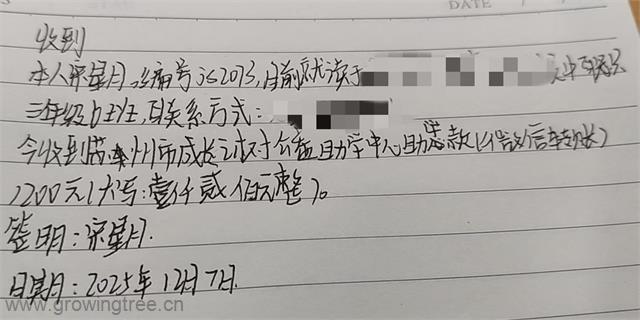 DATE
收到
本人宋星月,编号js2013,目前就读于
三年级6班,联系方式:
今收到苏州市成长树公益助学中心助学款(微信转账)
1200元(大写:壹仟贰佰元整)。
签明:宋星月.
日期:2025年12月7日.
www.growingtree.cn